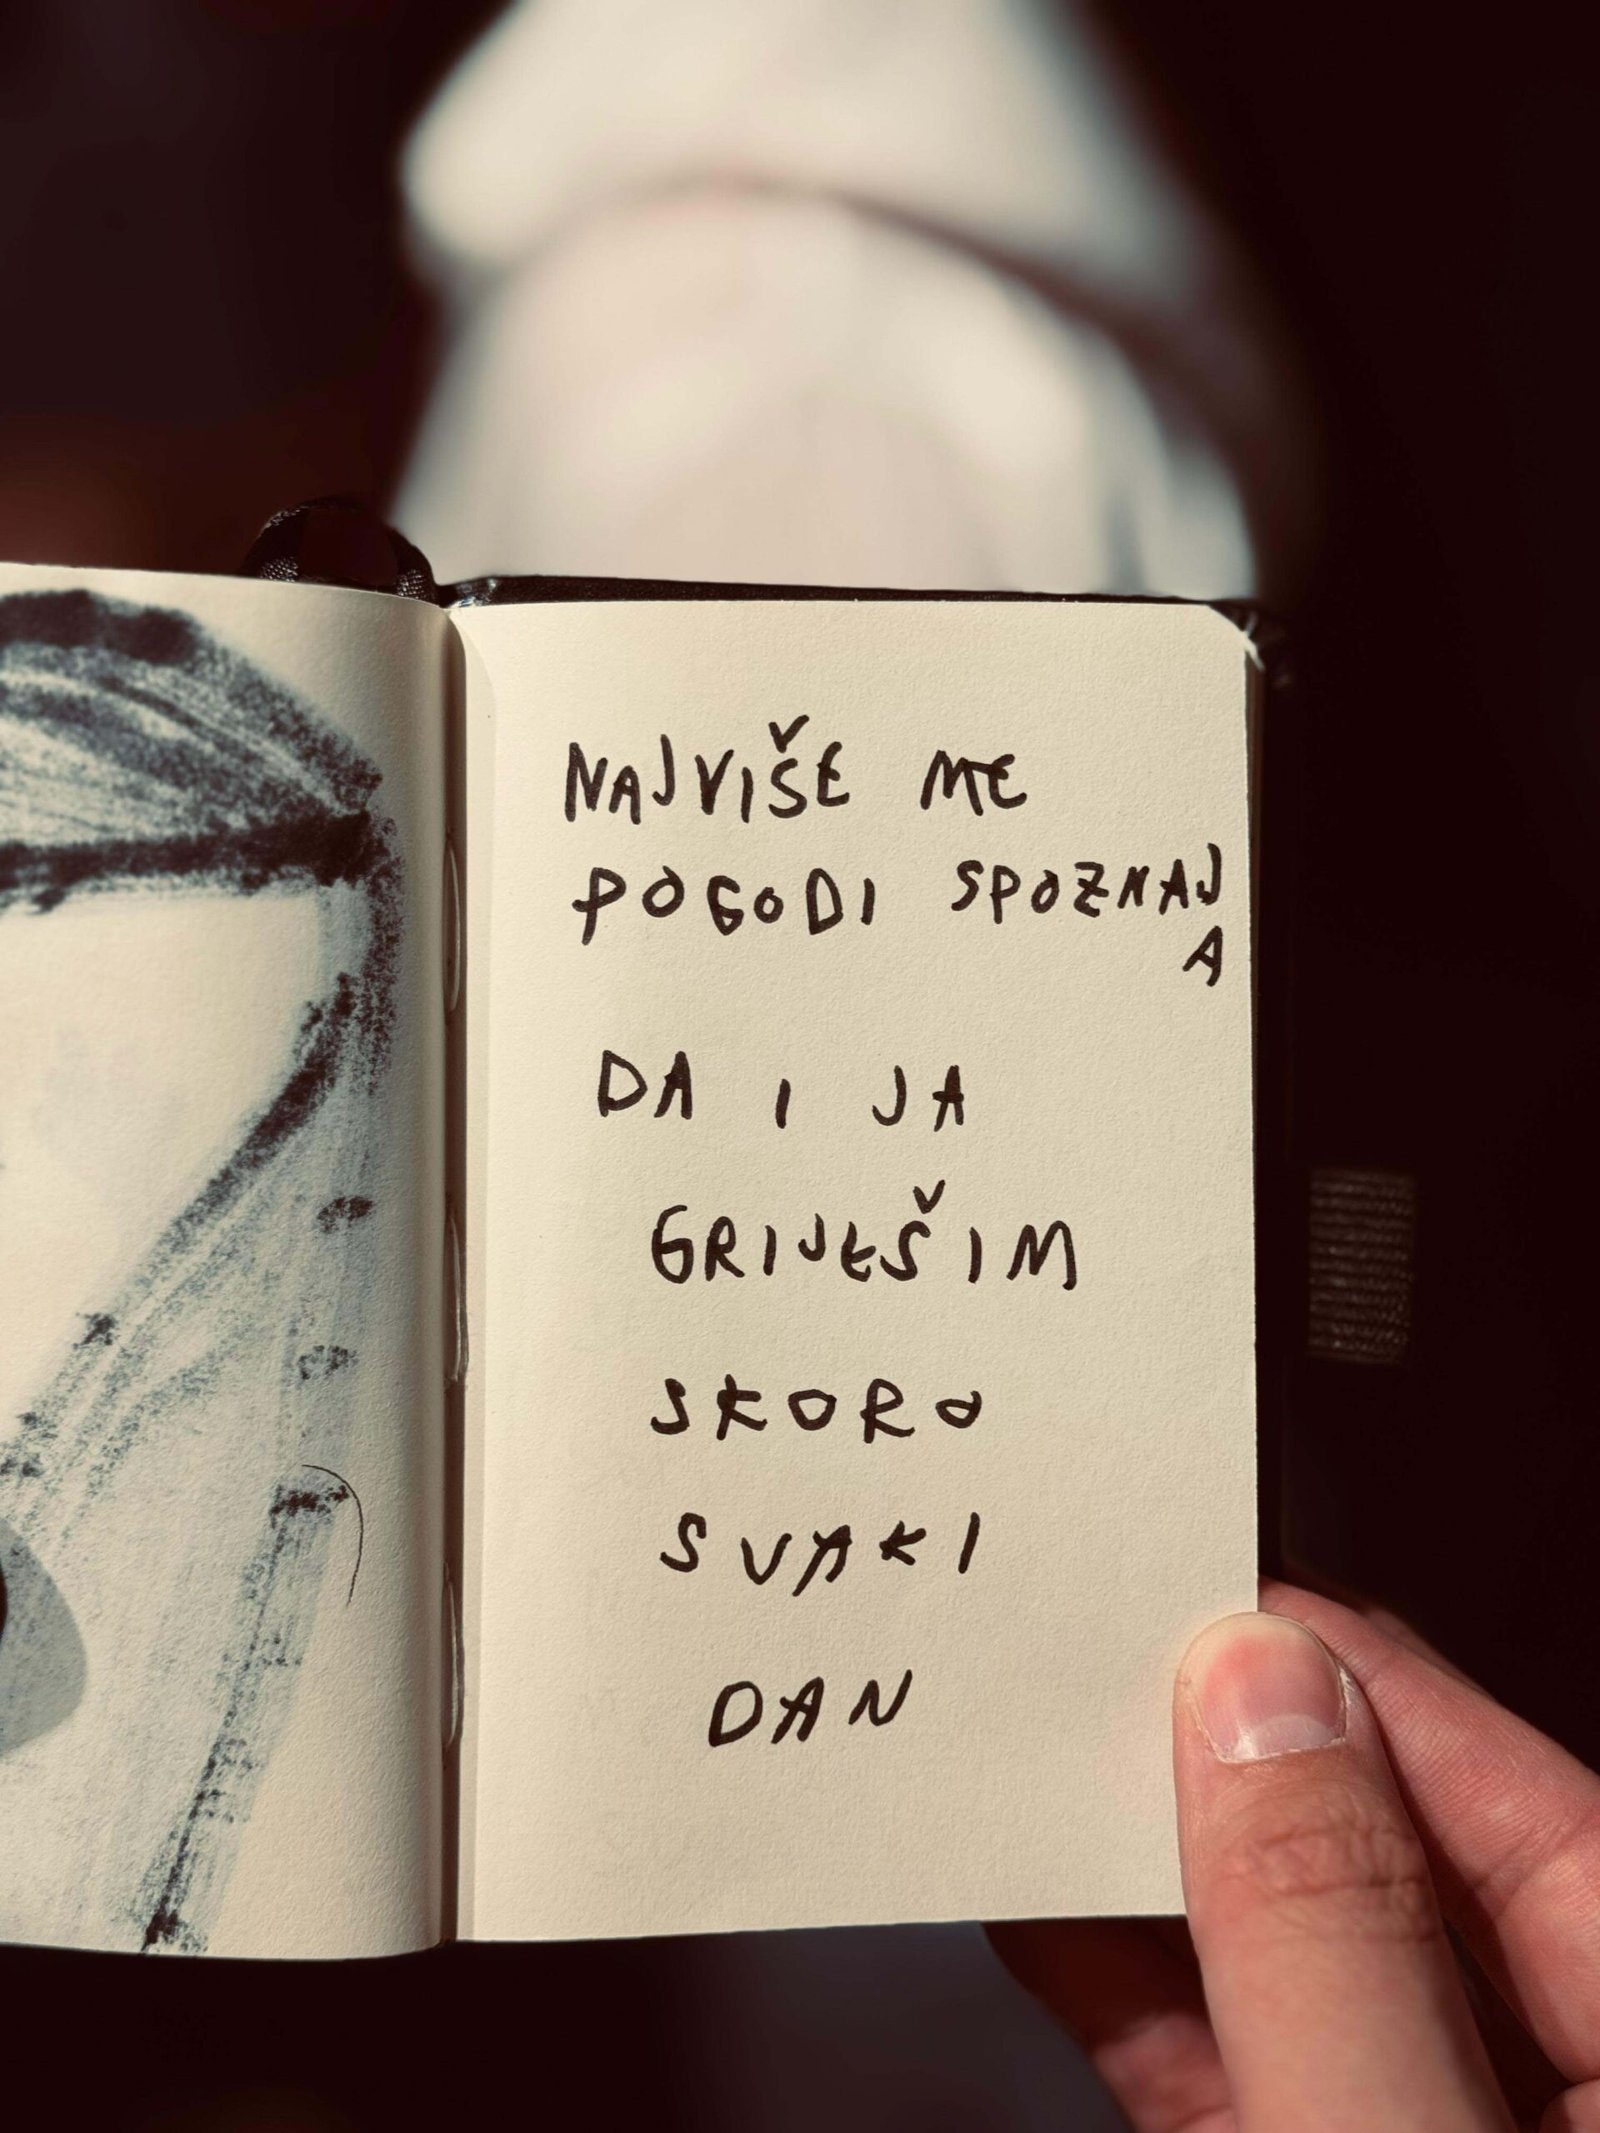 NAJVIŠE ME
POGODI SPOZNAJ
A
DA I JA
GRIJEŠIM
SKORO
SVAKI
DAN